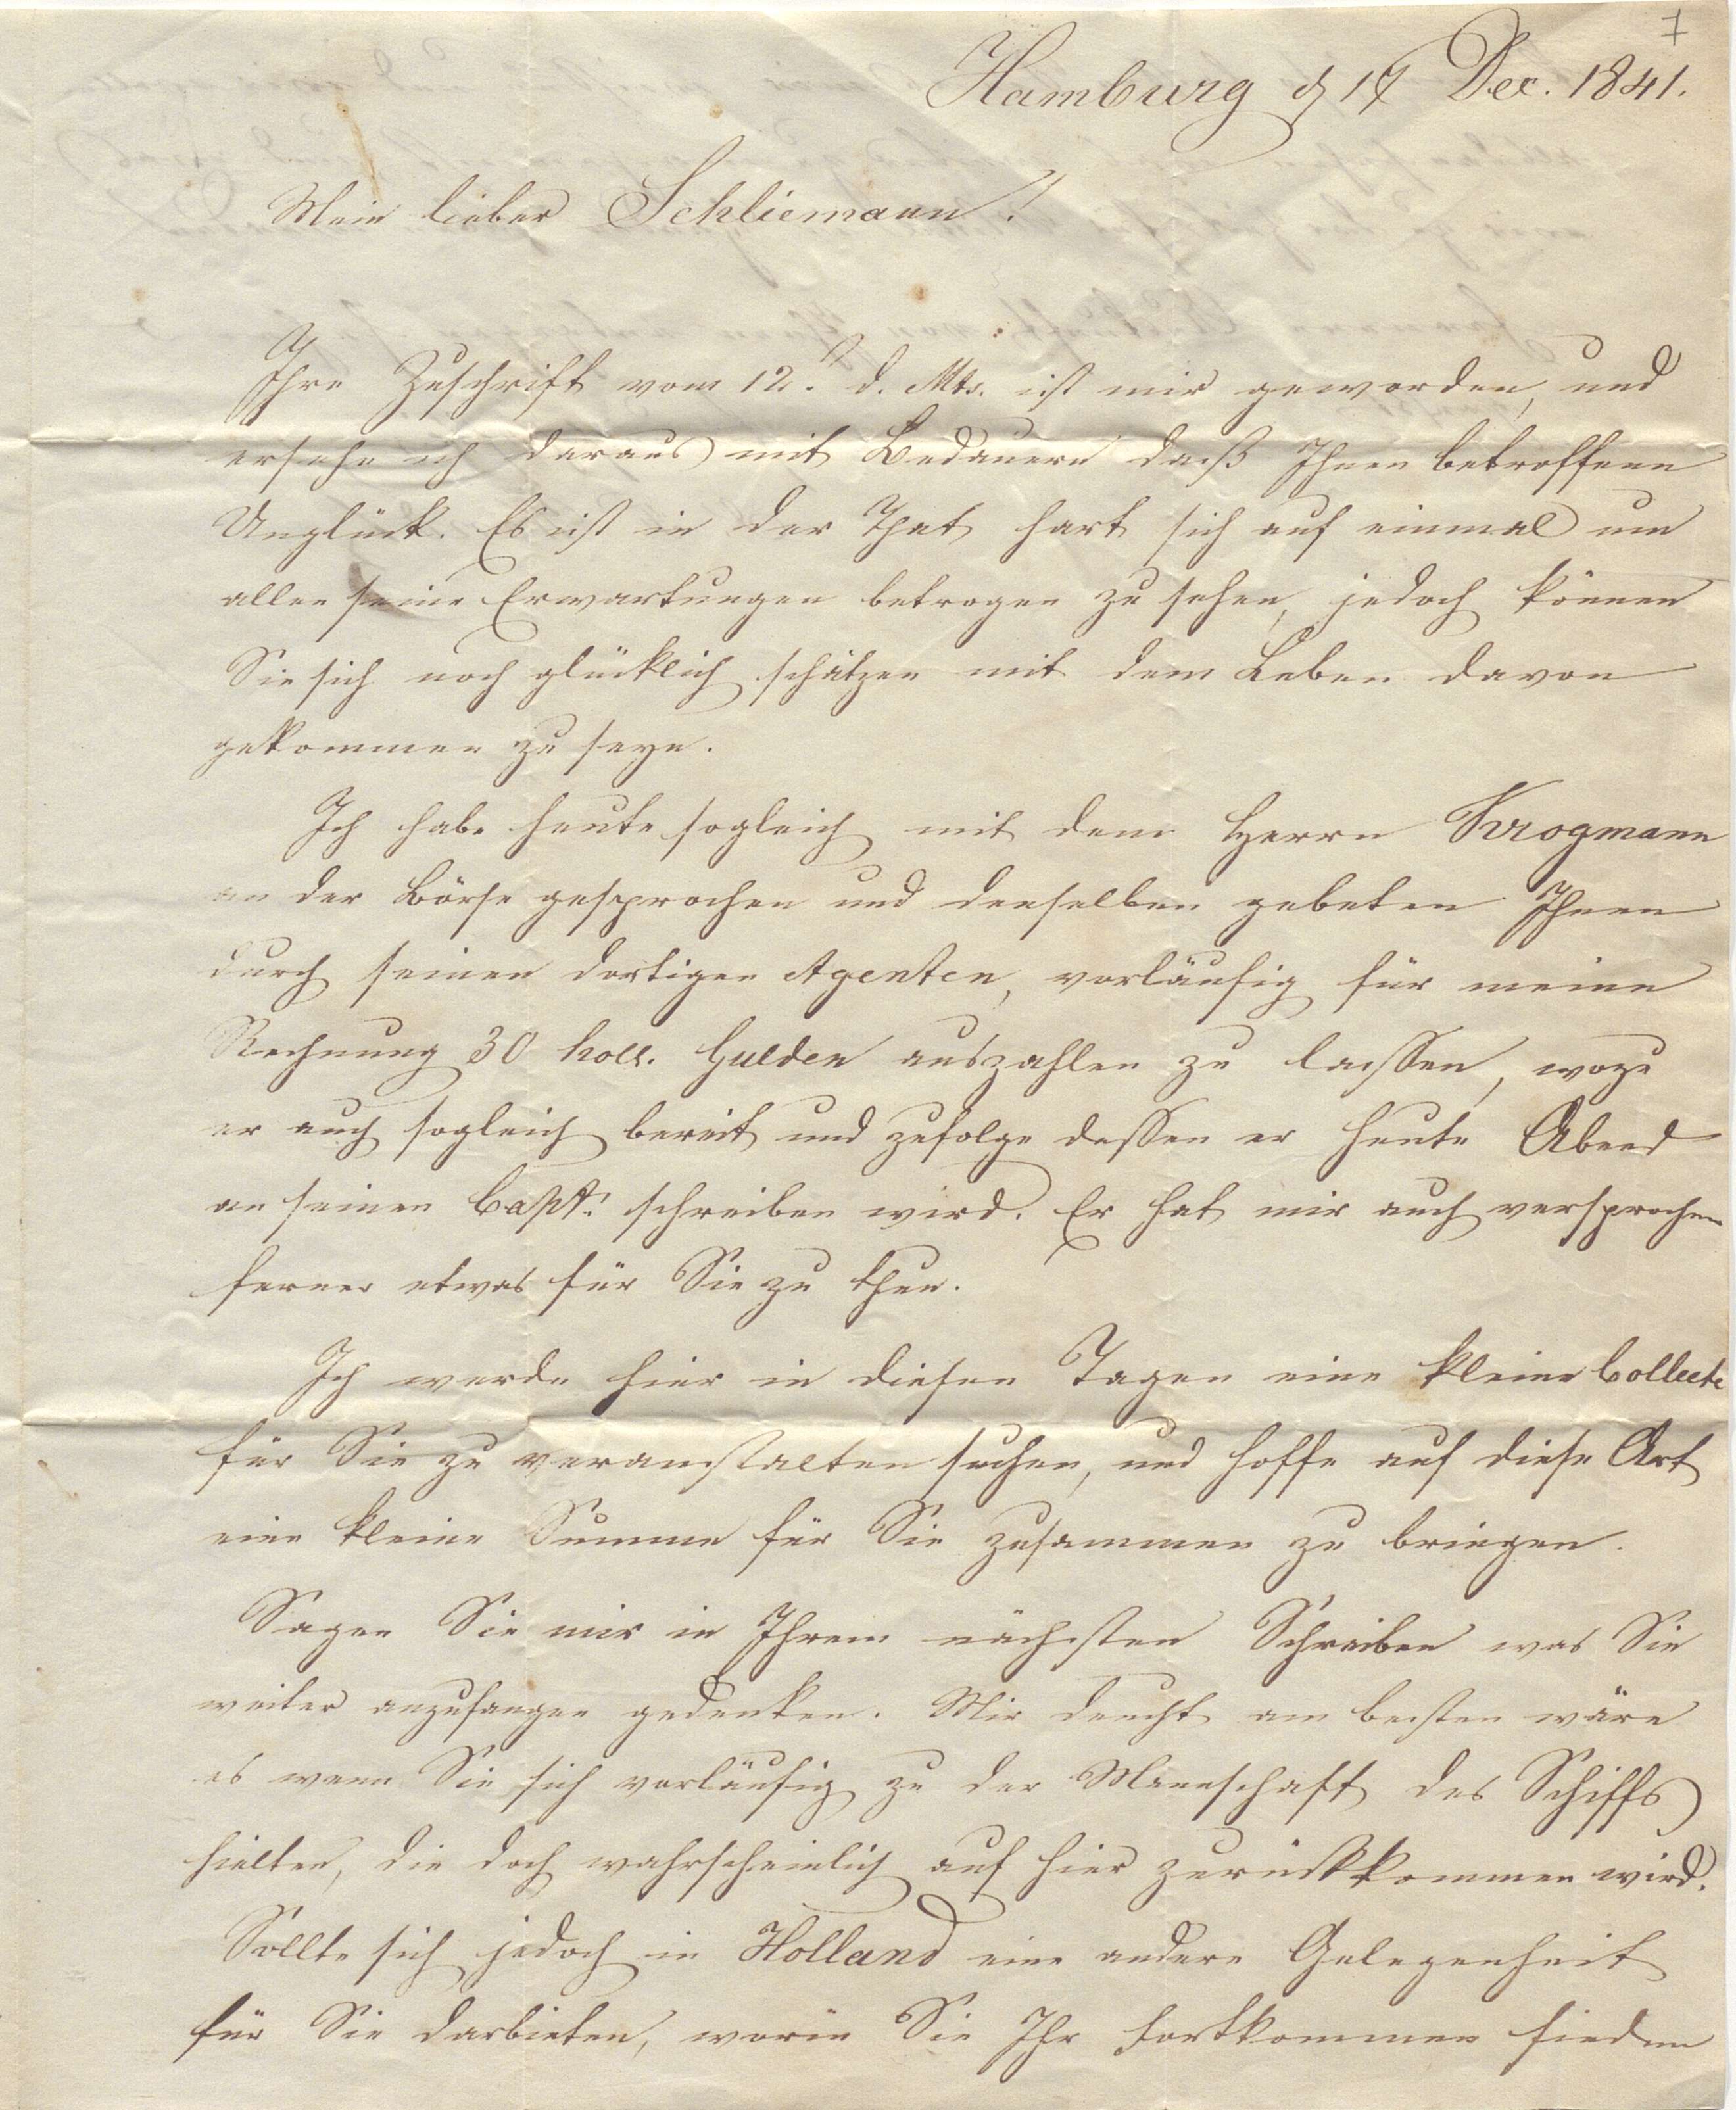 7
Hamburg d 17 Dec. 1841.
Mein lieber Schliemann!
Ihre Zuschrift vom 12. d. Mts. ist mir geworden, und
ersehe ich daraus mit Bedauern daß Ihnen betroffene
Unglück. Es ist in der That hart sich auf einmal um
allen seine Erwartungen betrogen zu sehen, jedoch können
Sie sich noch glücklich schätzen mit dem Leben davon
gekommen zu seyn.
Ich habe heute sogleich mit dem Herrn Krogmann
an der Börse gesprochen und denselben gebeten Ihnen
durch seinen dortigen Agenten, vorläufig für meine
Rechnung 30 holl. Gulden auszahlen zu lassen, wozu
er auch sogleich bereit und zufolge dessen er heute Abend
an seinen Capt: schreiben wird. Er hat mir auch versprochen
ferner etwas für Sie zu thun.
Ich werde hier in diesen Tagen eine kleine Collecte
für Sie zu veranstalten suchen, und hoffe auf diese Art
eine kleine Summe für Sie zusammen zu bringen.
Sagen Sie mir in Ihrem nächsten Schreiben was Sie
weiter anzufangen gedenken. Mir deucht am besten wäre
es wenn Sie sich vorläufig zu der Mannschaft des Schiffs
hielten, die doch wahrscheinlich auf hier zurückkommen wird.
Sollte sich jedoch in Holland eine andere Gelegenheit
für Sie darbieten, worin Sie Ihr Fortkommen finden